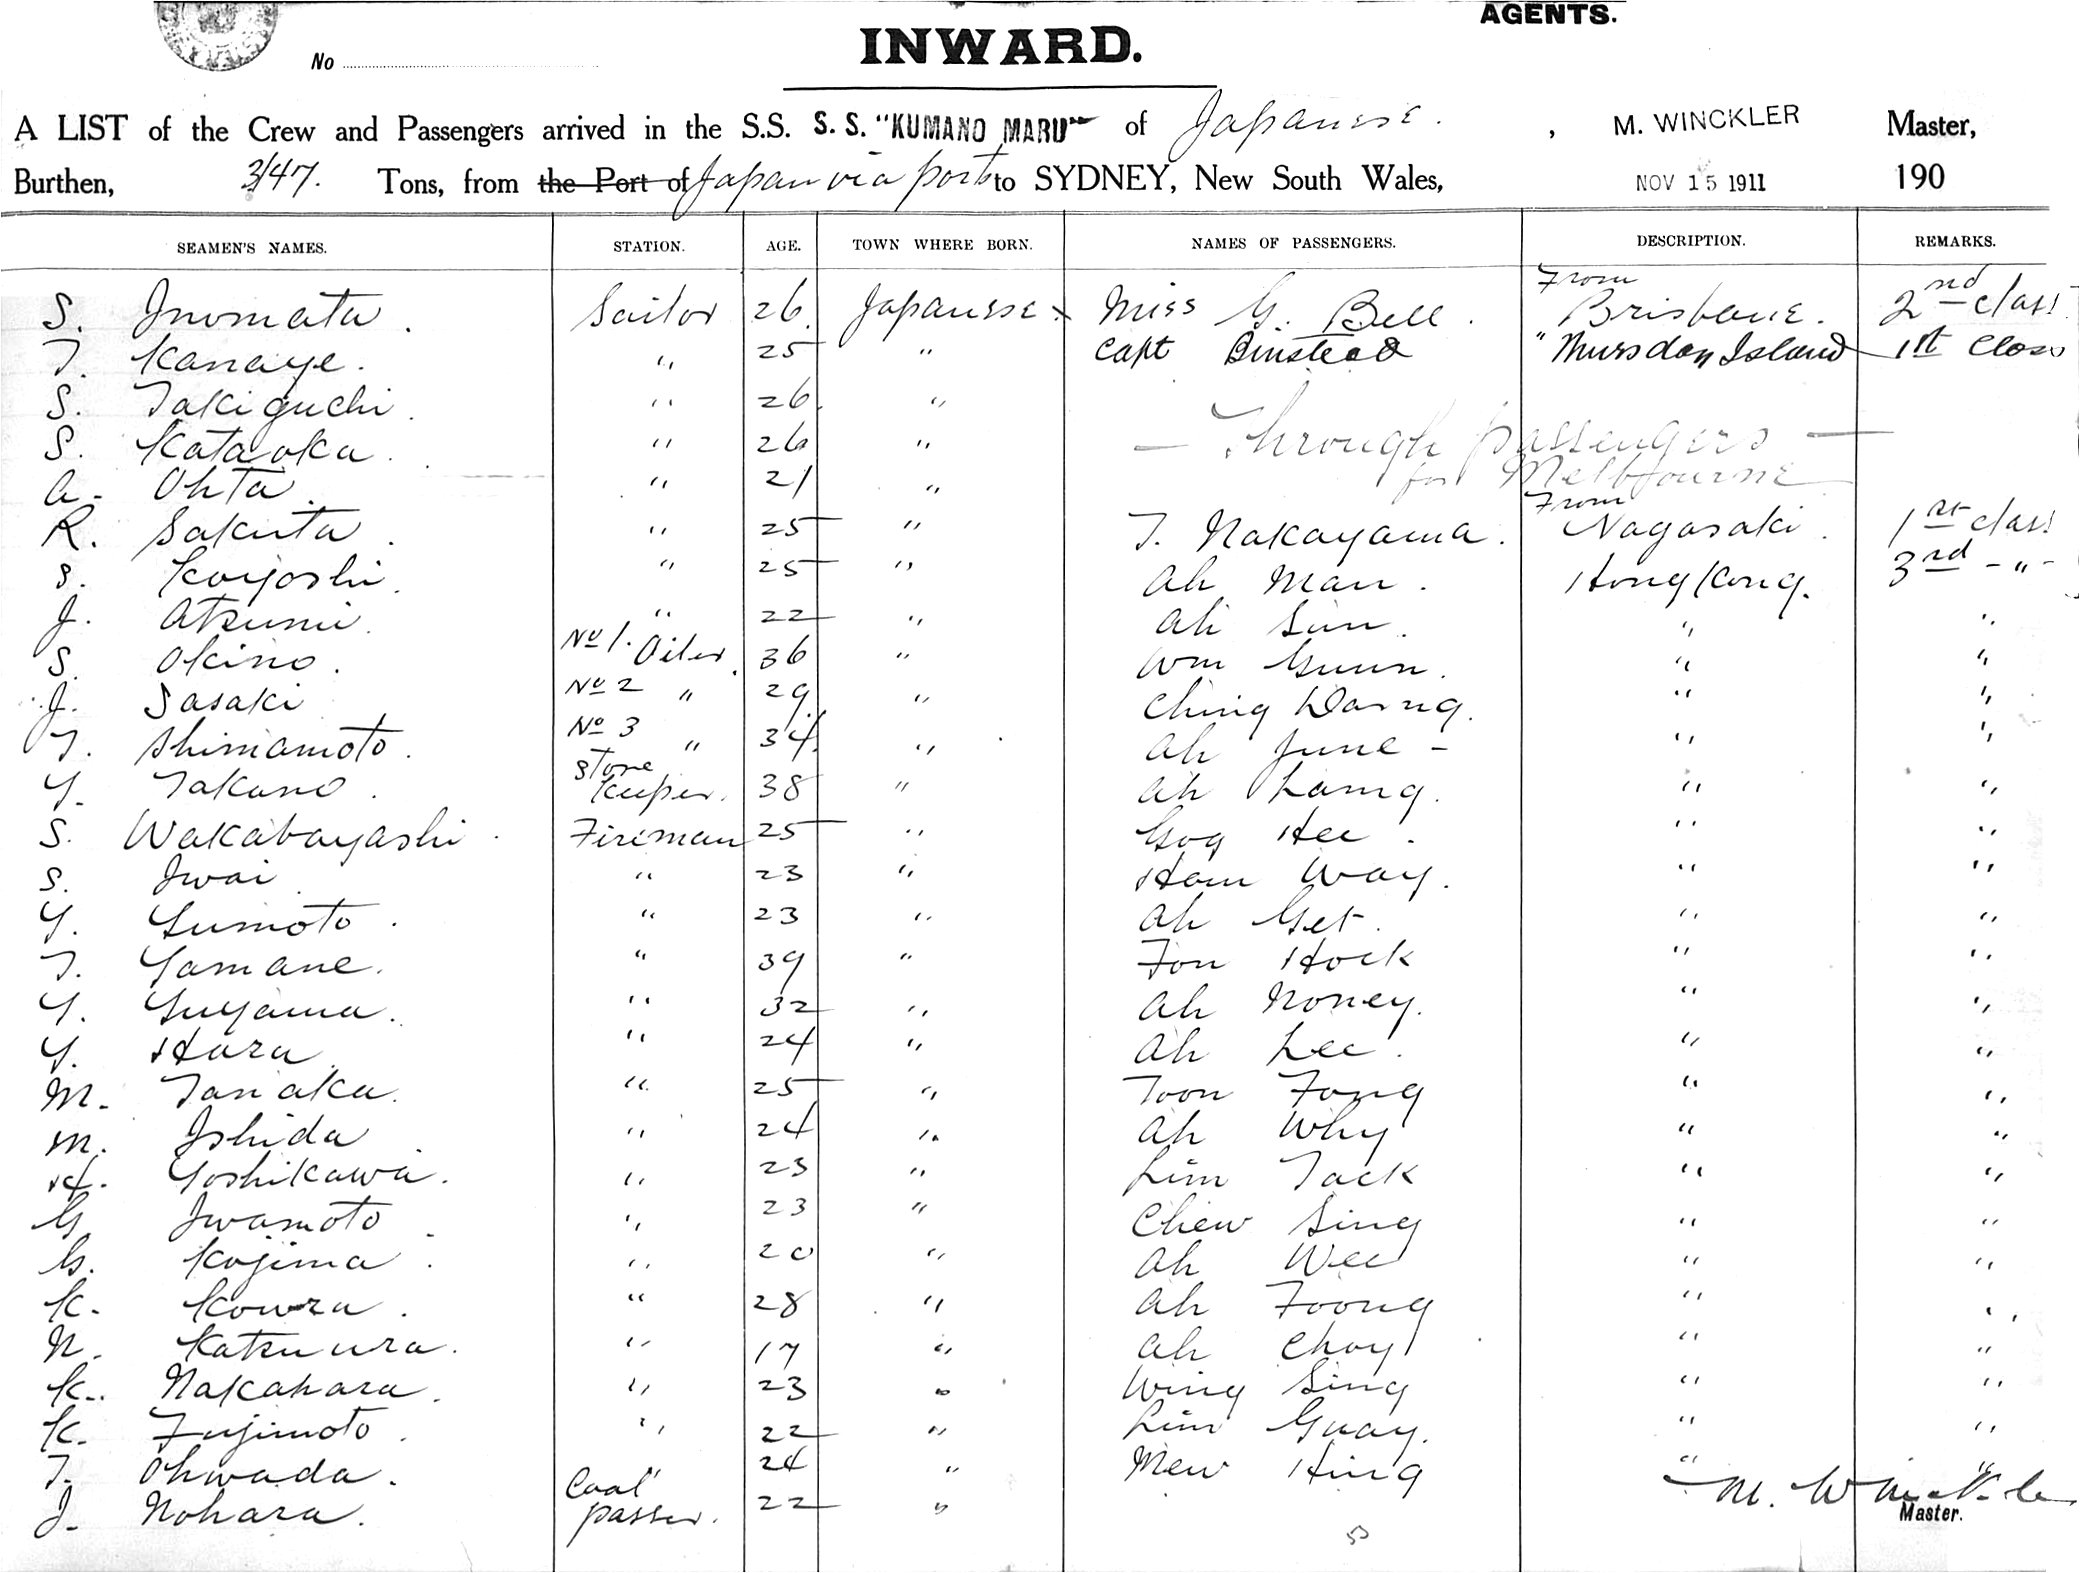 AGENTS.
INWARD.
No
A LIST of the Crew and Passengers arrived in the S.S. S. S. "KUMANO MARU" of Japanese. , M. WINCKLER Master,
Burthen, 3147. Tons, from the Port of Japan via ports to SYDNEY, New South Wales, NOV 15 1911 190
SEAMEN'S NAMES. STATION. AGE. TOWN WHERE BORN. NAMES OF PASSENGERS. DESCRIPTION. REMARKS.
From
S. Inomata. Sailor 26. Japanese x Miss G. Bell. Brisbane. 2nd class
T. Kanaye. " 25 " Capt Binstead " Thursday Island 1st Class
S. Takiguchi. " 26. "
S. Kataoka. " 26 " — Through passengers —
for Melbourne
A. Ohta. " 21 "
From
R. Sakuta. " 25 " T. Nakayama. Nagasaki. 1st class
S. Koyoshi. " 25 " Ah Man. Hong Kong. 3rd - " -
J. Atsumi. " 22 " Ah Sun. " "
S. Okino. No 1. Oiler. 36 " Wm Gunn. " "
J. Sasaki No 2 " 29 " Ching " "
T. Shimamoto. No 3 " 34. " Ah June - " "
Y. Takano. Store Keeper. 38 " Ah Lang. " "
S. Wakabayashi. Fireman 25 " Goy Hee. " "
S. Iwai. " 23 " Ham Way. " "
Y. Yumoto. " 23 " Ah Get. " "
T. Yamane. " 39 " Fon Hock " "
Y. Yuyama. " 32 " Ah Noney. " "
Y. Hara. " 24 " Ah Lee. " "
M. Tanaka. " 25 " Toon Fong " "
M. Ishida " 24 " Ah Why " "
H. Yoshikawa. " 23 " Lim Tack " "
G. Iwamoto. " 23 " Chew Sing " "
G. Kojima. " 20 " Ah Wee " "
K. Kowra. " 28 " Ah Foong " "
N. Katsuura. " 17 " Ah Choy " "
K. Nakahara. " 23 " Wing Sing " "
K. Fujimoto. " 22 " Lim Guay. " "
T. Ohwada. " 24 " Mew Hing " "
J. Nohara. Coal passer. 22 " M. Winckler
Master.